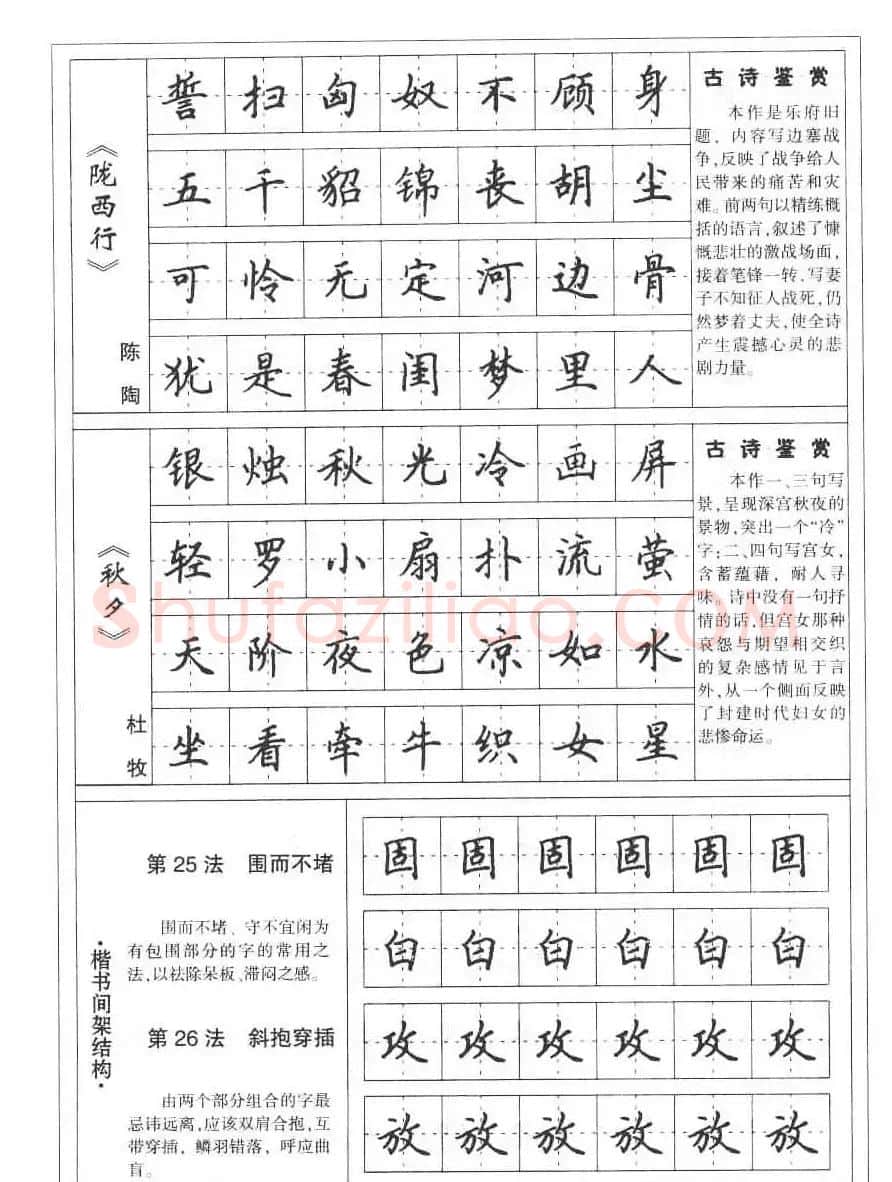 《陇西行》
陈陶
誓扫匈奴不顾身
五千貂锦丧胡尘
可怜无定河边骨
犹是春闺梦里人
古诗鉴赏
本作是乐府旧
题，内容写边塞战
争,反映了战争给人
民带来的痛苦和灾
难。前两句以精练概
括的语言,叙述了慷
慨悲壮的激战场面,
接着笔锋一转、写妻
子不知征人战死,仍
然梦着丈夫,使全诗
产生震撼心灵的悲
剧力量。
《秋夕》
杜牧
银烛秋光冷画屏
轻罗小扇扑流萤
天阶夜色凉如水
坐看牵牛织女星
古诗鉴赏
本作一、三句写
景,呈现深宫秋夜的
景物,突出一个“冷”
字;二、四句写宫女,
含蓄蕴藉，耐人寻
味。诗中没有一句抒
情的话,但宫女那种
哀怨与期望相交织
的复杂感情见于言
外,从一个侧面反映
了封建时代妇女的
悲惨命运。
Shufaziliao.COM
·楷书间架结构·
第25法 围而不堵
围而不堵、守不宜闲为
有包围部分的字的常用之
法,以祛除呆板、滞闷之感。
第26法 斜抱穿插
由两个部分组合的字最
忌讳远离,应该双肩合抱,互
带穿插，鳞羽错落，呼应曲
盲。
固固固固固固
攻攻攻攻攻攻
放放放放放放